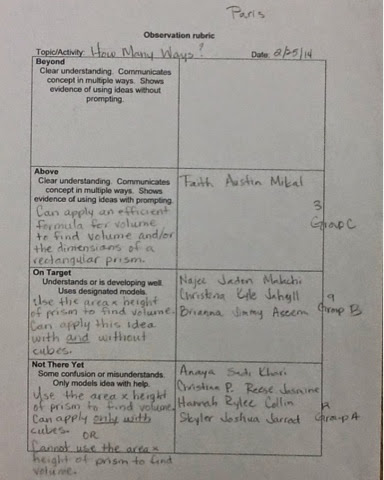 Paris
Observation rubric
Topic/Activity: How Many Ways? Date: 2/25/14
Beyond
Clear understanding. Communicates
concept in multiple ways. Shows
evidence of using ideas without
prompting.
Above
Clear understanding. Communicates
concept in multiple ways. Shows
evidence of using ideas with prompting.
Can apply an efficient
formula for volume
to find volume and/or
the dimensions of a
rectangular prism.
Faith Austin Mikal
3
Group C
On Target
Understands or is developing well.
Uses designated models.
Use the area x height
of prism to find volume.
Can apply this idea
with and without
cubes.
Najee Jaden Malachi
Christina Kyle Jahyll
Brianna Jimmy Aseem
9
Group B
Not There Yet
Some confusion or misunderstands.
Only models idea with help.
Use the area x height
of prism to find volume.
Can apply only with
cubes. OR
Cannot use the area x
height of prism to find
volume.
Anaya Khari
Christian P. Reese Jasmine
Hannah Rylee Collin
Skyler Joshua Jarrod
Group A